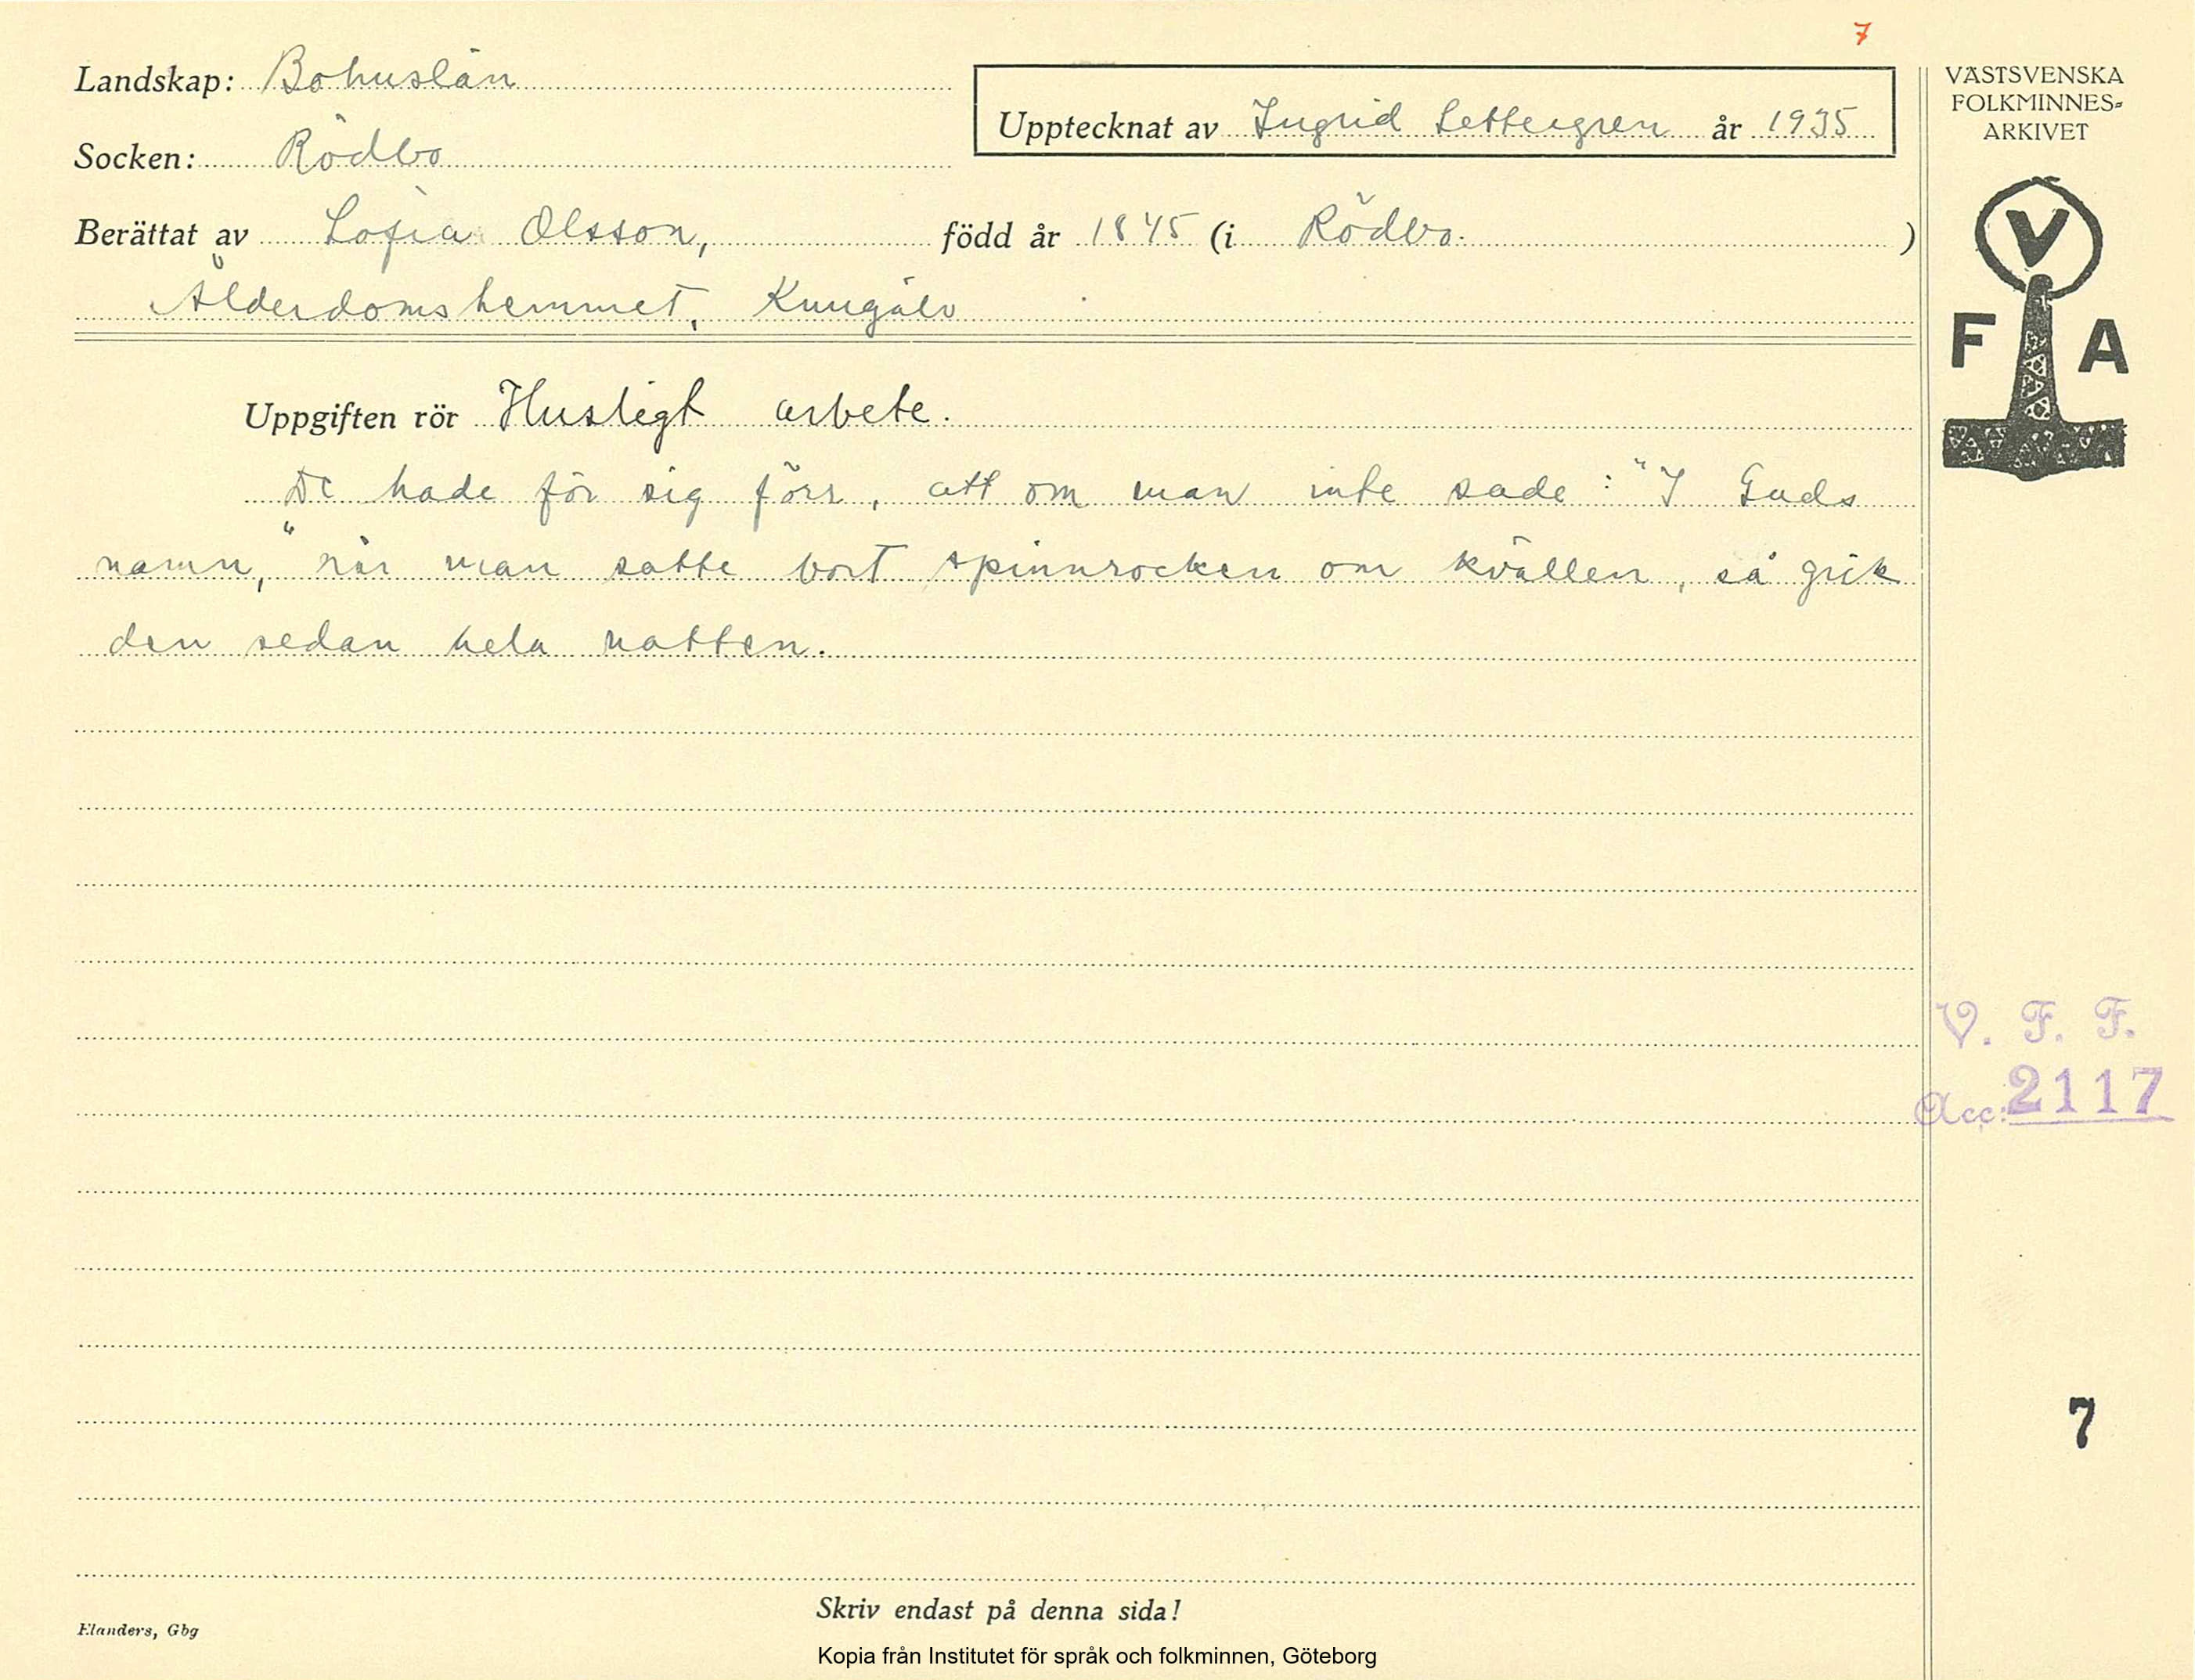 7
Landskap: Bohuslän
Socken: Rödbo
Upptecknat av Ingrid Settergren år 1935
Berättat av Sofia Olsson, född år 1845 (i Rödbo.)
Ålderdomshemmet, Kungälv
Uppgiften rör Husligt arbete.
De hade för sig förr, att om man inte sade: "I Guds
namn," när man satte bort spinnrocken om kvällen, så gick
den sedan hela natten.
VÄSTSVENSKA
FOLKMINNES-
ARKIVET
V
F A
V. F. F.
Acc: 2117
7
Skriv endast på denna sida!
Elanders, Gbg
Kopia från Institutet för språk och folkminnen, Göteborg